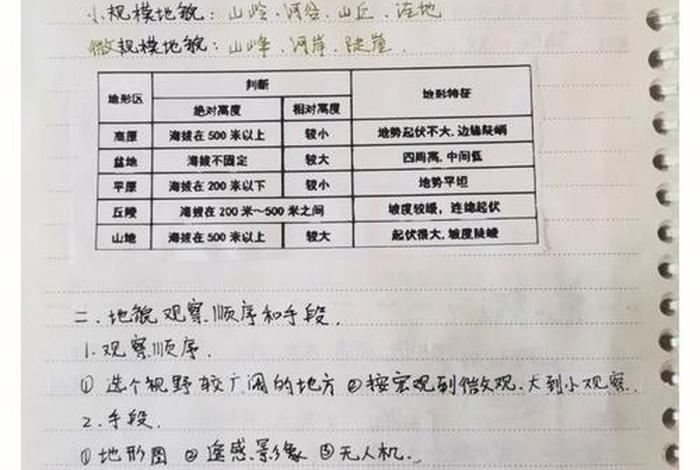 小规模地貌：山岭、河谷、山丘、洼地
微规模地貌：山峰、河岸、陡崖.
地形区 判断 地形特征
绝对高度 相对高度
高原 海拔在500米以上 较小 地势起伏不大,边缘陡峭
盆地 海拔不固定 较大 四周高,中间低
平原 海拔在200米以下 较小 地势平坦
丘陵 海拔在200米～500米之间 坡度较缓，连绵起伏
山地 海拔在500米以上 较大 起伏很大,坡度陡峻
二.地貌观察顺序和手段.
1.观察顺序.
①选个视野较广阔的地方 ②按宏观到微观.大到小观察.
2.手段.
①地形图 ②遥感影像 ③无人机.